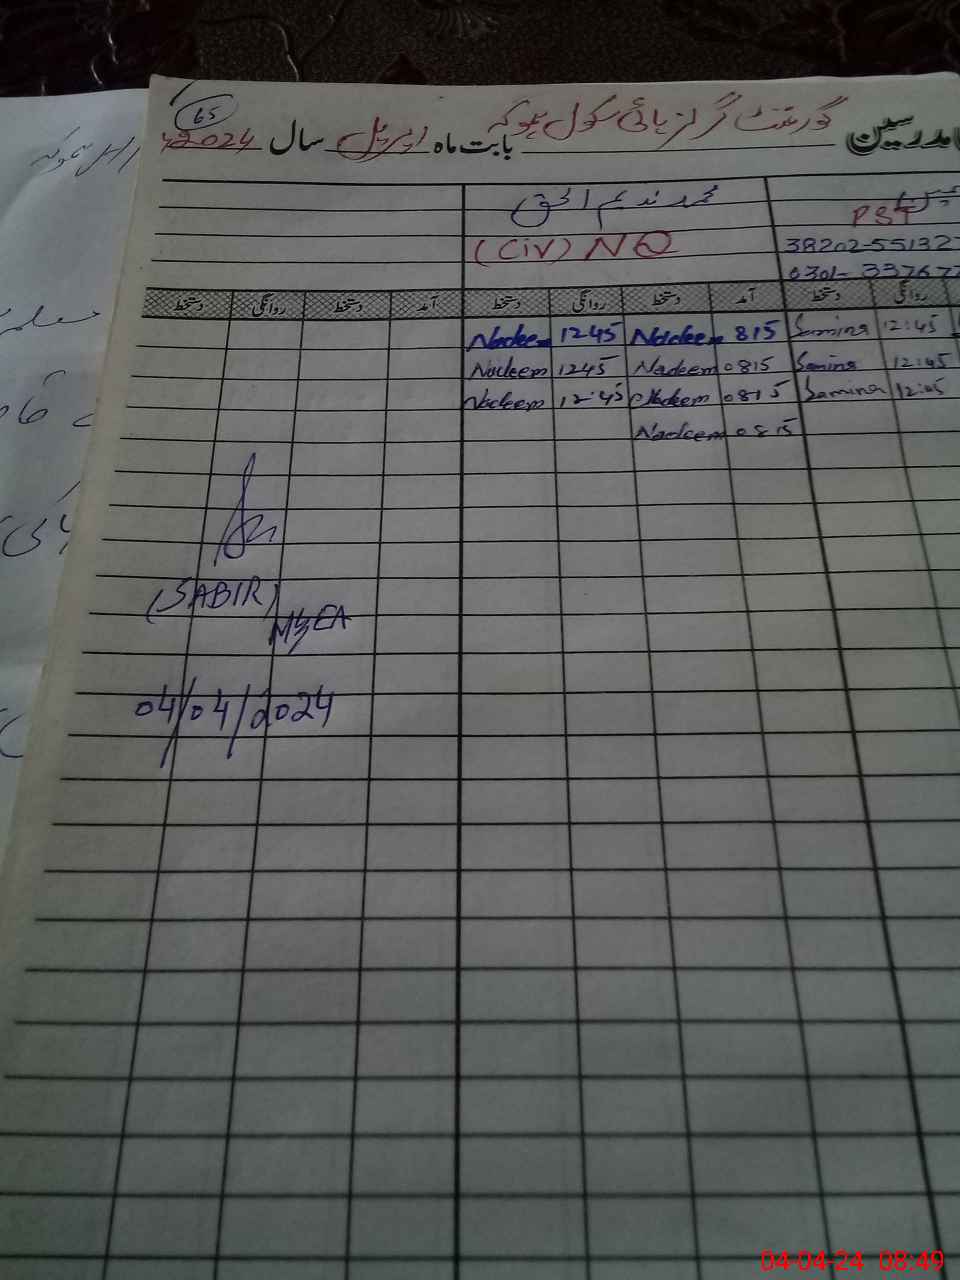 65
مدرسین گورنمنٹ گرلز ہائی سکول بابت ماہ اپریل سال 2024
محمد ندیم الحق
PST
(Civ) NQ
38202-55132
0301-33767
دستخط روانگی دستخط آمد دستخط روانگی دستخط آمد دستخط روانگی
Nadeem 1245 Nadeem 815 Samina 12:45
Nadeem 1245 Nadeem 0815 Samina 12:45
Nadeem 12:45 Nadeem 0815 Samina 12:45
Nadeem 0815
(SABIR)
MEA
04/04/2024
04-04-24 08:49